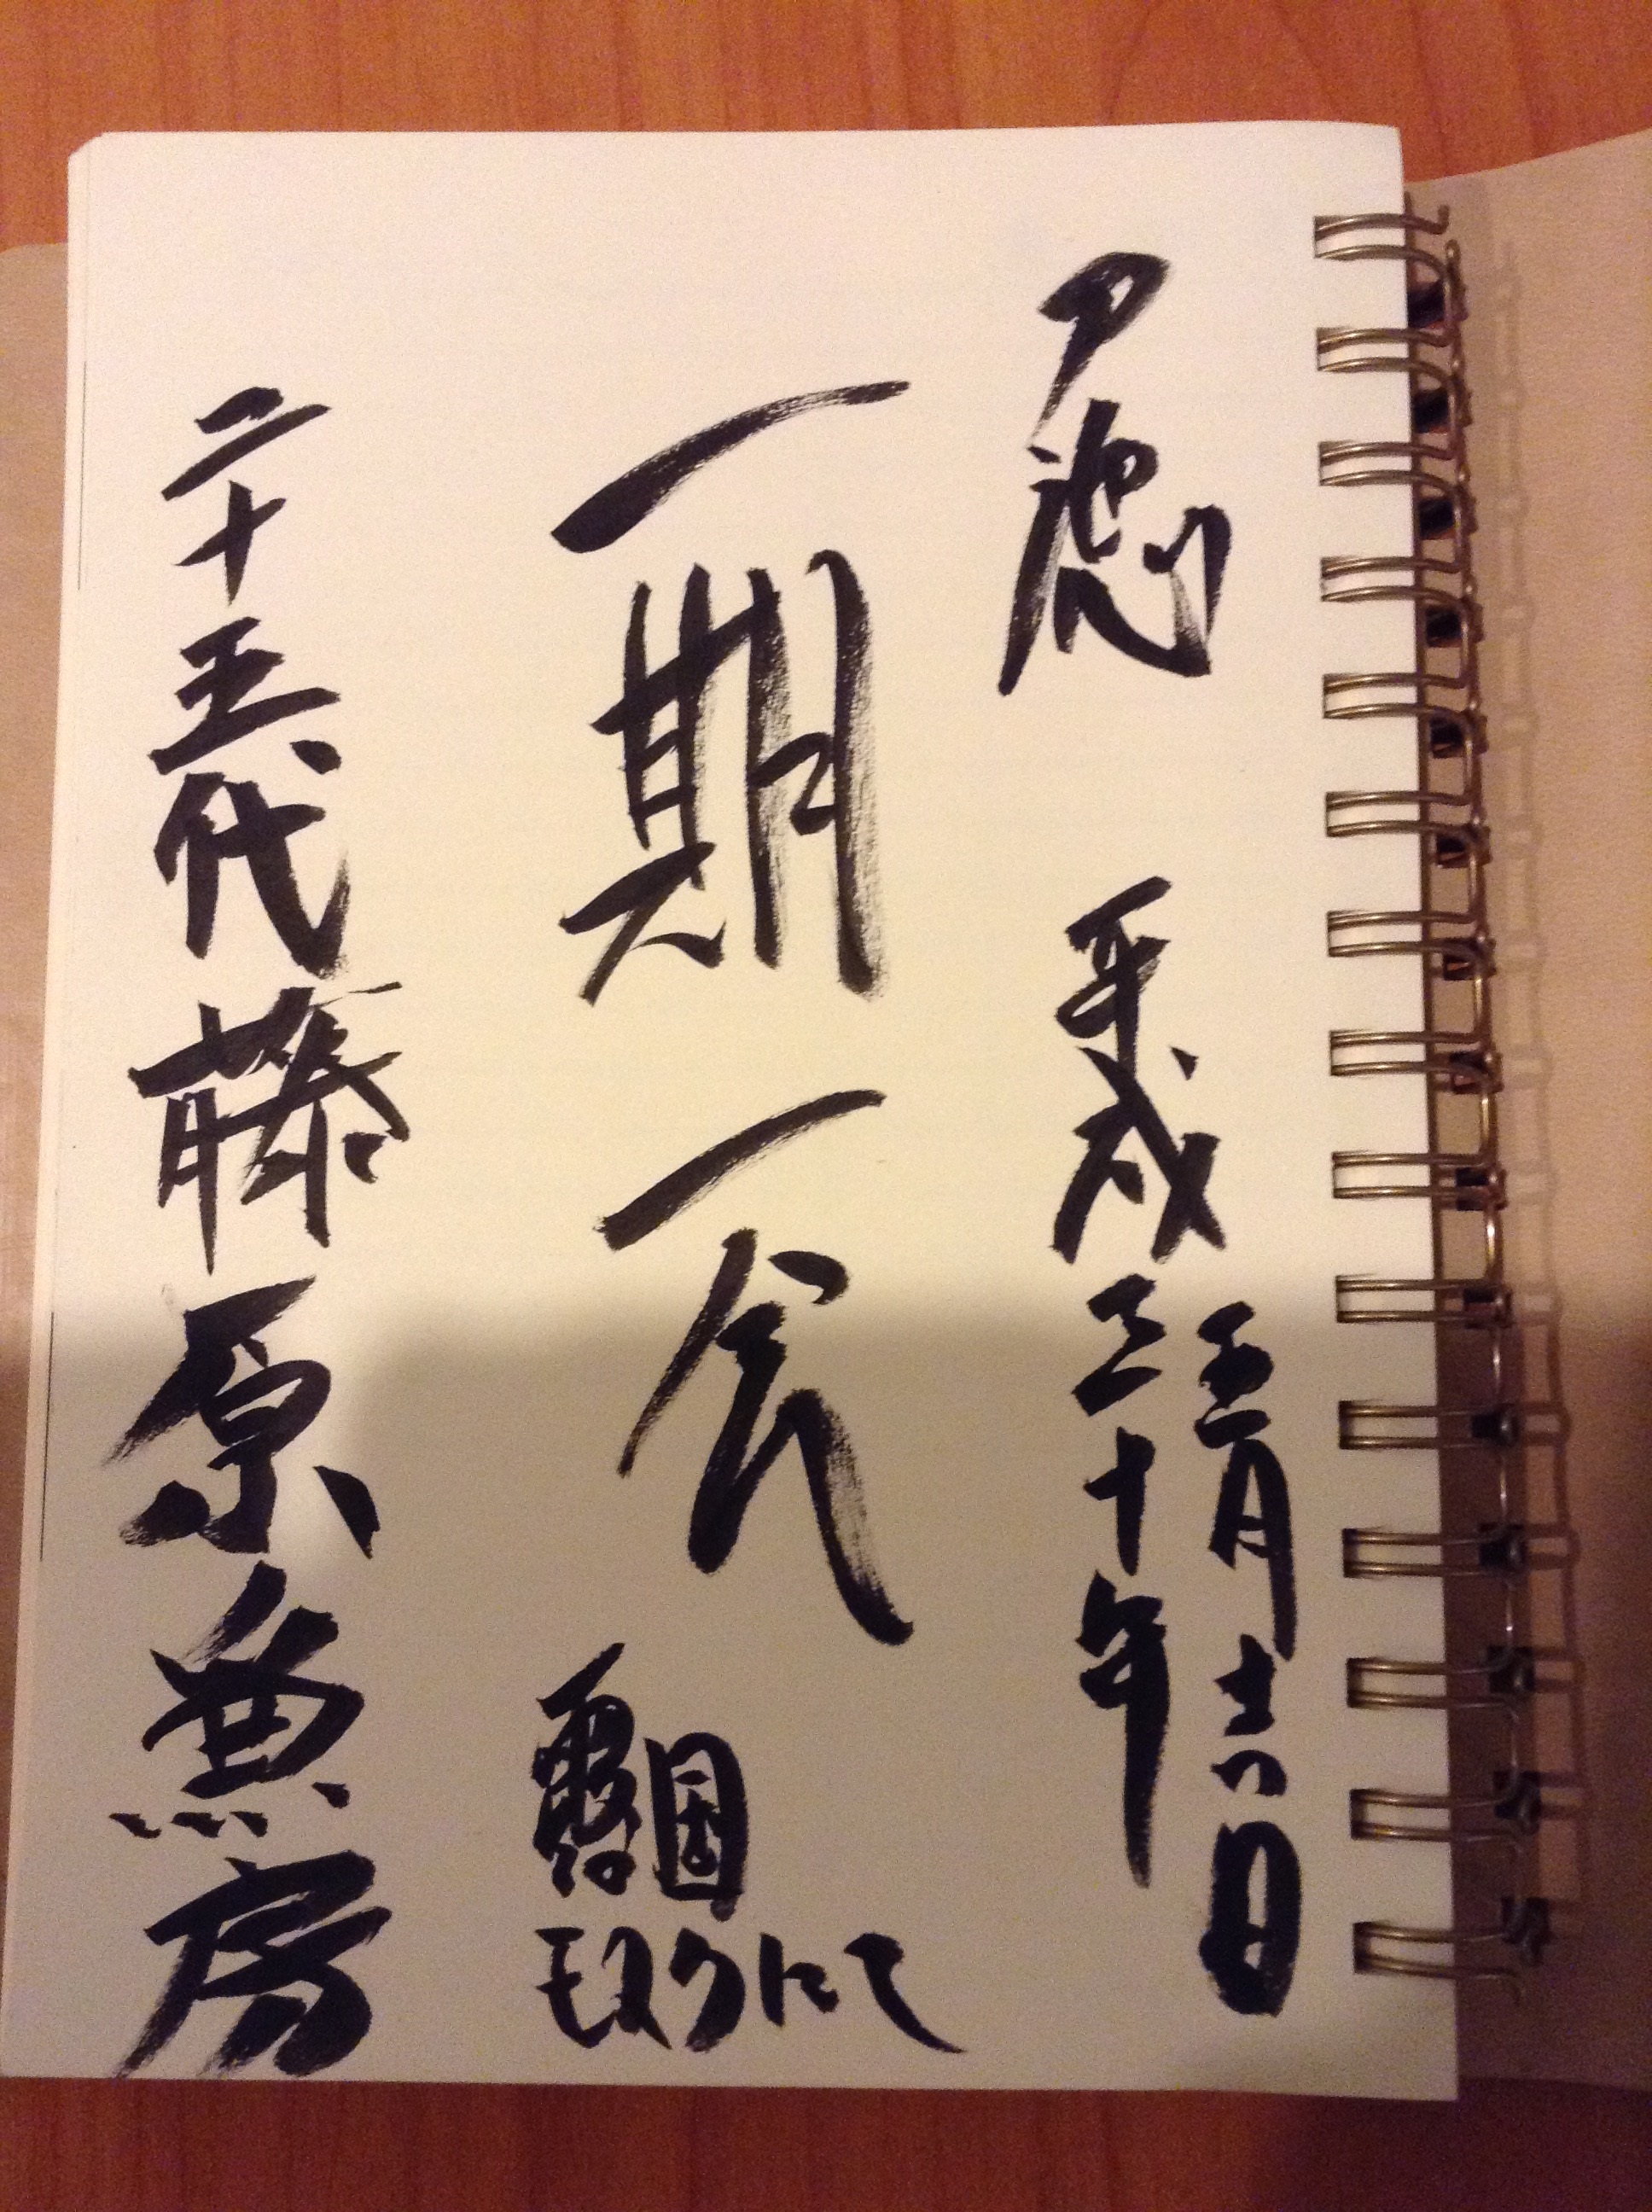 平成三十年
五月十六日
一期一会
露国
モスクワにて
二十五代藤原兼房